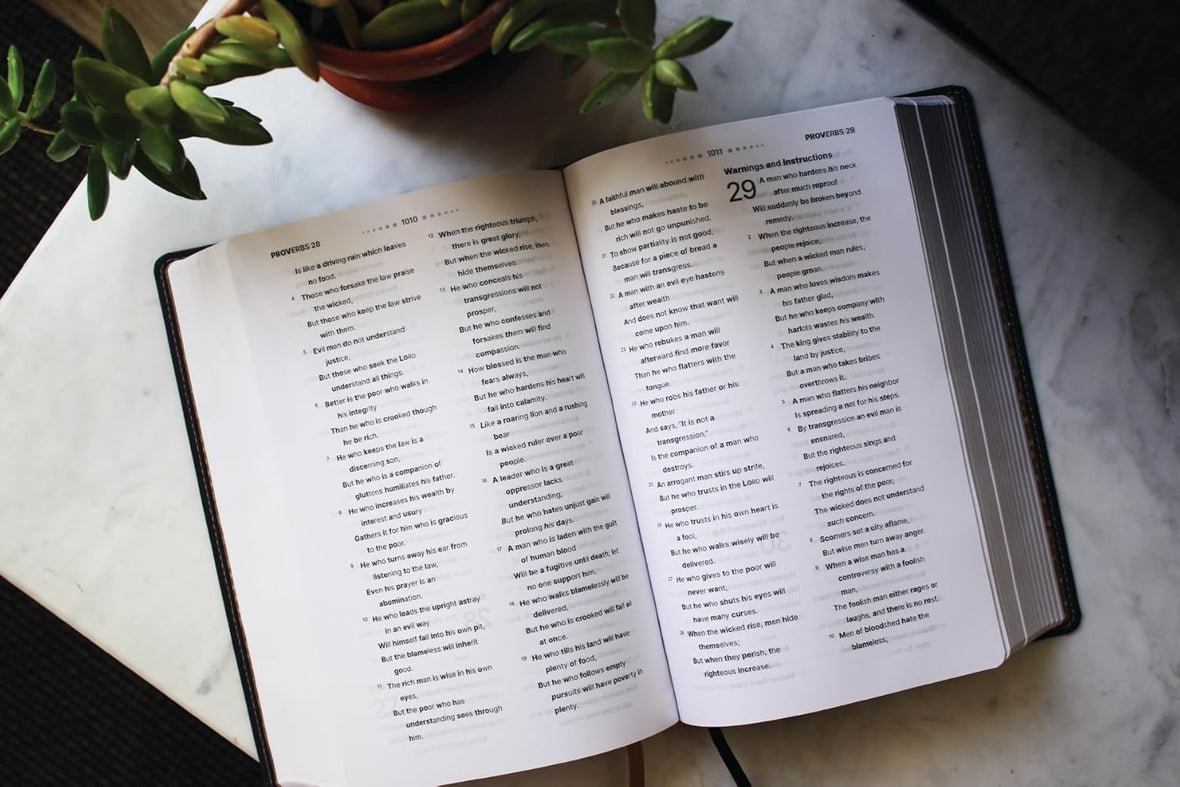 PROVERBS 28
1010
Is like a driving rain which leaves
no food.
4 Those who forsake the law praise
the wicked,
But those who keep the law strive
with them.
5 Evil men do not understand
justice,
But those who seek the LORD
understand all things.
6 Better is the poor who walks in
his integrity
Than he who is crooked though
he be rich.
7 He who keeps the law is a
discerning son,
But he who is a companion of
gluttons humiliates his father.
8 He who increases his wealth by
interest and usury
Gathers it for him who is gracious
to the poor.
9 He who turns away his ear from
listening to the law,
Even his prayer is an
abomination.
10 He who leads the upright astray
in an evil way
Will himself fall into his own pit,
But the blameless will inherit
good.
11 The rich man is wise in his own
eyes,
But the poor who has
understanding sees through
him.
12 When the righteous triumph,
there is great glory,
But when the wicked rise, men
hide themselves.
13 He who conceals his
transgressions will not
prosper,
But he who confesses and
forsakes them will find
compassion.
14 How blessed is the man who
fears always,
But he who hardens his heart will
fall into calamity.
15 Like a roaring lion and a rushing
bear
Is a wicked ruler over a poor
people.
16 A leader who is a great
oppressor lacks
understanding,
But he who hates unjust gain will
prolong his days.
17 A man who is laden with the guilt
of human blood
Will be a fugitive until death; let
no one support him.
18 He who walks blamelessly will be
delivered,
But he who is crooked will fall all
at once.
19 He who tills his land will have
plenty of food,
But he who follows empty
pursuits will have poverty in
plenty.
1011
PROVERBS 29
20 A faithful man will abound with
blessings,
But he who makes haste to be
rich will not go unpunished.
21 To show partiality is not good,
Because for a piece of bread a
man will transgress.
22 A man with an evil eye hastens
after wealth
And does not know that want will
come upon him.
23 He who rebukes a man will
afterward find more favor
Than he who flatters with the
tongue.
24 He who robs his father or his
mother
And says, "It is not a
transgression,"
Is the companion of a man who
destroys.
25 An arrogant man stirs up strife,
But he who trusts in the LORD will
prosper.
26 He who trusts in his own heart is
a fool,
But he who walks wisely will be
delivered.
27 He who gives to the poor will
never want,
But he who shuts his eyes will
have many curses.
28 When the wicked rise, men hide
themselves;
But when they perish, the
righteous increase.
Warnings and Instructions
29 A man who hardens his neck
after much reproof
Will suddenly be broken beyond
remedy.
2 When the righteous increase, the
people rejoice,
But when a wicked man rules,
people groan.
3 A man who loves wisdom makes
his father glad,
But he who keeps company with
harlots wastes his wealth.
4 The king gives stability to the
land by justice,
But a man who takes bribes
overthrows it.
5 A man who flatters his neighbor
Is spreading a net for his steps.
6 By transgression an evil man is
ensnared,
But the righteous sings and
rejoices.
7 The righteous is concerned for
the rights of the poor,
The wicked does not understand
such concern.
8 Scorners set a city aflame,
But wise men turn away anger.
9 When a wise man has a
controversy with a foolish
man,
The foolish man either rages or
laughs, and there is no rest.
10 Men of bloodshed hate the
blameless,